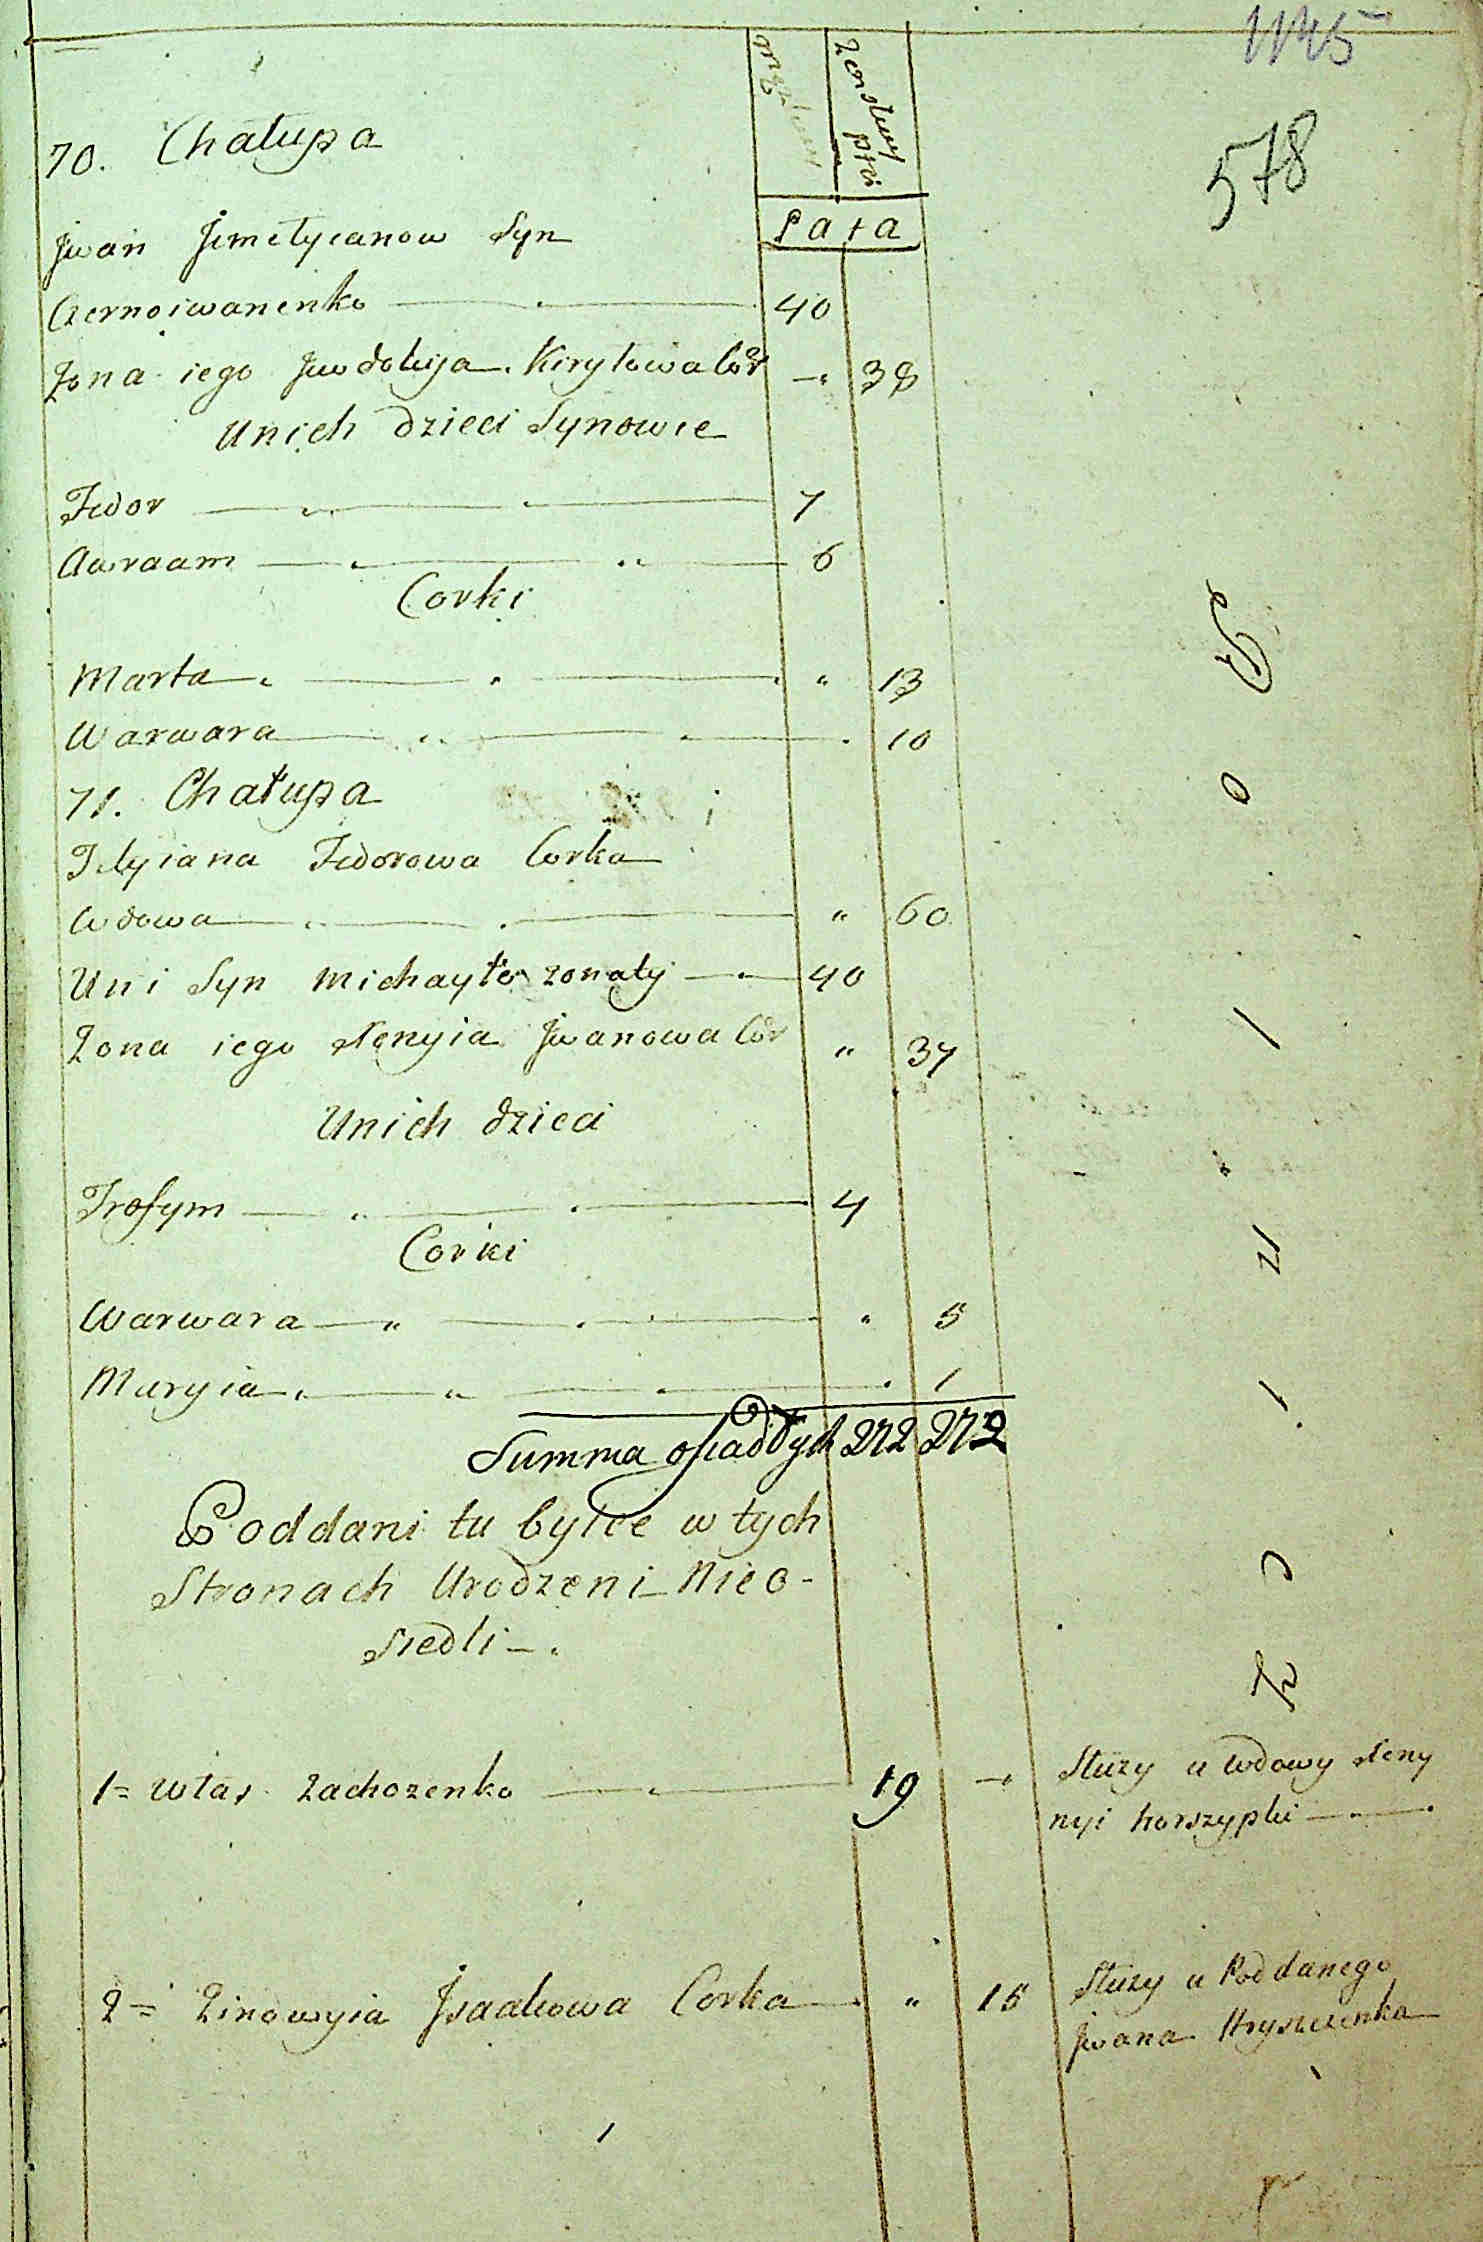 1145
578
zenskiey
płci
Lata
70. Chałupa
Jwan Syn
Czernoiwanenko 40
Zona iego Jwdokija Kiryłowa Cór 38
Unich dzieci Synowie
Fedor 7
Awraam 6
Corki
Marta 13
Warwara 10
71. Chałupa
Tetyiana Fedorowa Corka
Wdowa 60
Uni Syn Michayło zonaty 40
Zona iego Xenyia Jwanowa Cór 37
Unich dzieci
Trofym 4
Corki
Warwara 5
Maryia 1
Summa osiadłych 272 272
Poddani tu w tych
Stronach Urodzeni Nieo-
siedli
1= Własz Zachozenko 19 Służy u Wdowy Xeny
nyi
2= Zinowyia Jsaakowa Corka 15 Służy u Poddanego
Jwana